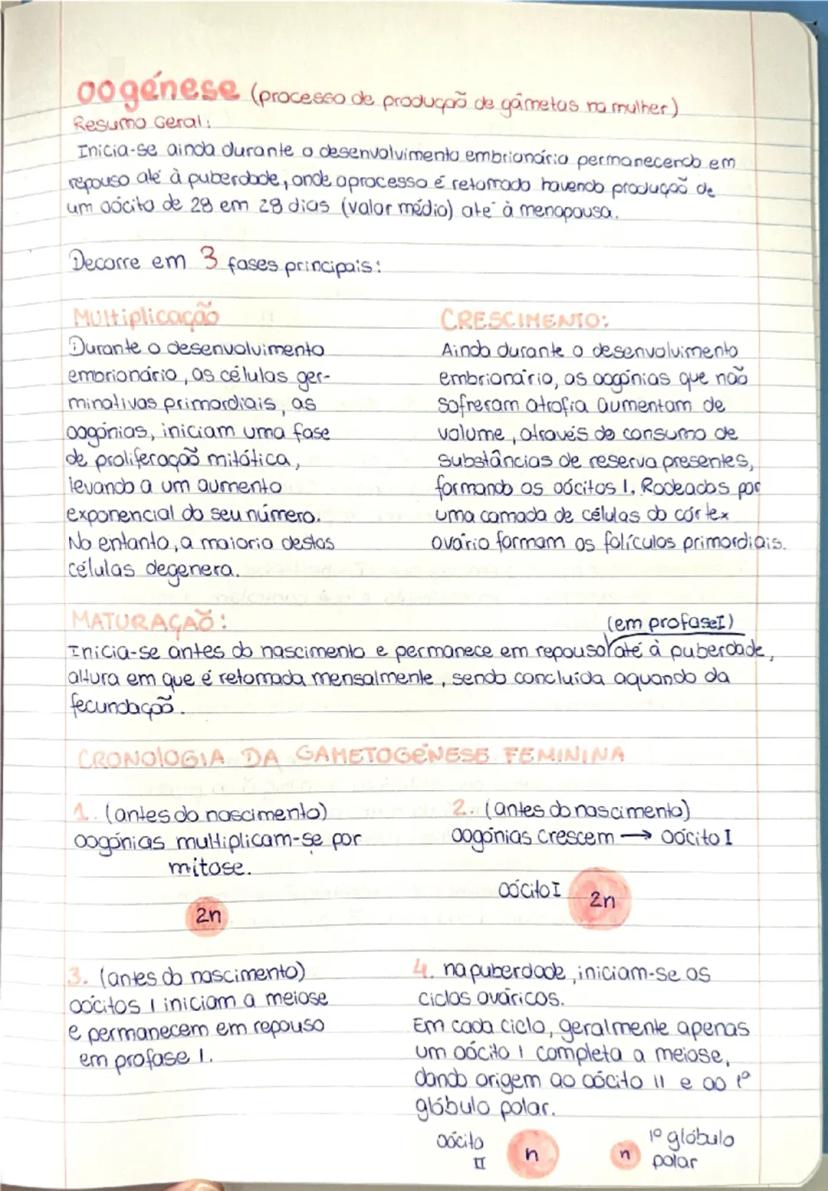 oogénese (processo de produção de gâmetas na mulher)
Resumo Geral:
Inicia-se ainda durante o desenvolvimento embrionário permanecendo em
repouso até à puberdade, onde o processo é retomado havendo produção de
um oócito de 28 em 28 dias (valor médio) até à menopausa.
Decorre em 3 fases principais:
Multiplicação
Durante o desenvolvimento
embrionário, as células ger-
minativas primordiais, as
oogónias, iniciam uma fase
de proliferação mitótica,
levando a um aumento
exponencial do seu número.
No entanto, a maioria destas
células degenera.
CRESCIMENTO:
Ainda durante o desenvolvimento
embrionário, as oogónias que não
sofreram atrofia aumentam de
volume, através do consumo de
substâncias de reserva presentes,
formando os oócitos I. Rodeados por
uma camada de células do córtex
ovário formam os folículos primordiais.
MATURAÇÃO:
(em profase I)
Inicia-se antes do nascimento e permanece em repouso até à puberdade,
altura em que é retomada mensalmente, sendo concluída aquando da
fecundação.
CRONOLOGIA DA GAMETOGÉNESE FEMININA
1. (antes do nascimento)
oogónias multiplicam-se por
mitose.
2n
2. (antes do nascimento)
oogónias crescem → oócito I
oócito I 2n
3. (antes do nascimento)
oócitos I iniciam a meiose
e permanecem em repouso
em profase I.
4. na puberdade, iniciam-se os
ciclos ováricos.
Em cada ciclo, geralmente apenas
um oócito I completa a meiose,
dando origem ao oócito II e ao 1º
glóbulo polar.
oócito
II
n
n
1º glóbulo
polar